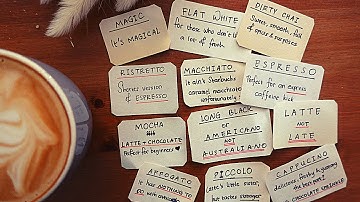 MAGIC
It's MAGICAL
FLAT WHITE
for those who don't like
a lot of froth
DIRTY CHAI
Sweet, smooth, full
of spice & purposes
RISTRETTO
Shorter version
of ESPRESSO
MACCHIATO
It ain't Starbucks
caramel macchiato
unfortunately!
ESPRESSO
Perfect for an express
caffeine kick
MOCHA
LATTE + CHOCOLATE
Perfect for beginners
LONG BLACK
or
AMERICANO
NOT
AUSTRALIANO
LATTE
NOT
LATE
AFFOGATO
It has NOTHING TO
DO with avocado
PICCOLO
Latte's little sister,
but tastes stronger
CAPPUCINO
delicious, frothy & yummy
the best part?
CHOCOLATE SPRINKLE